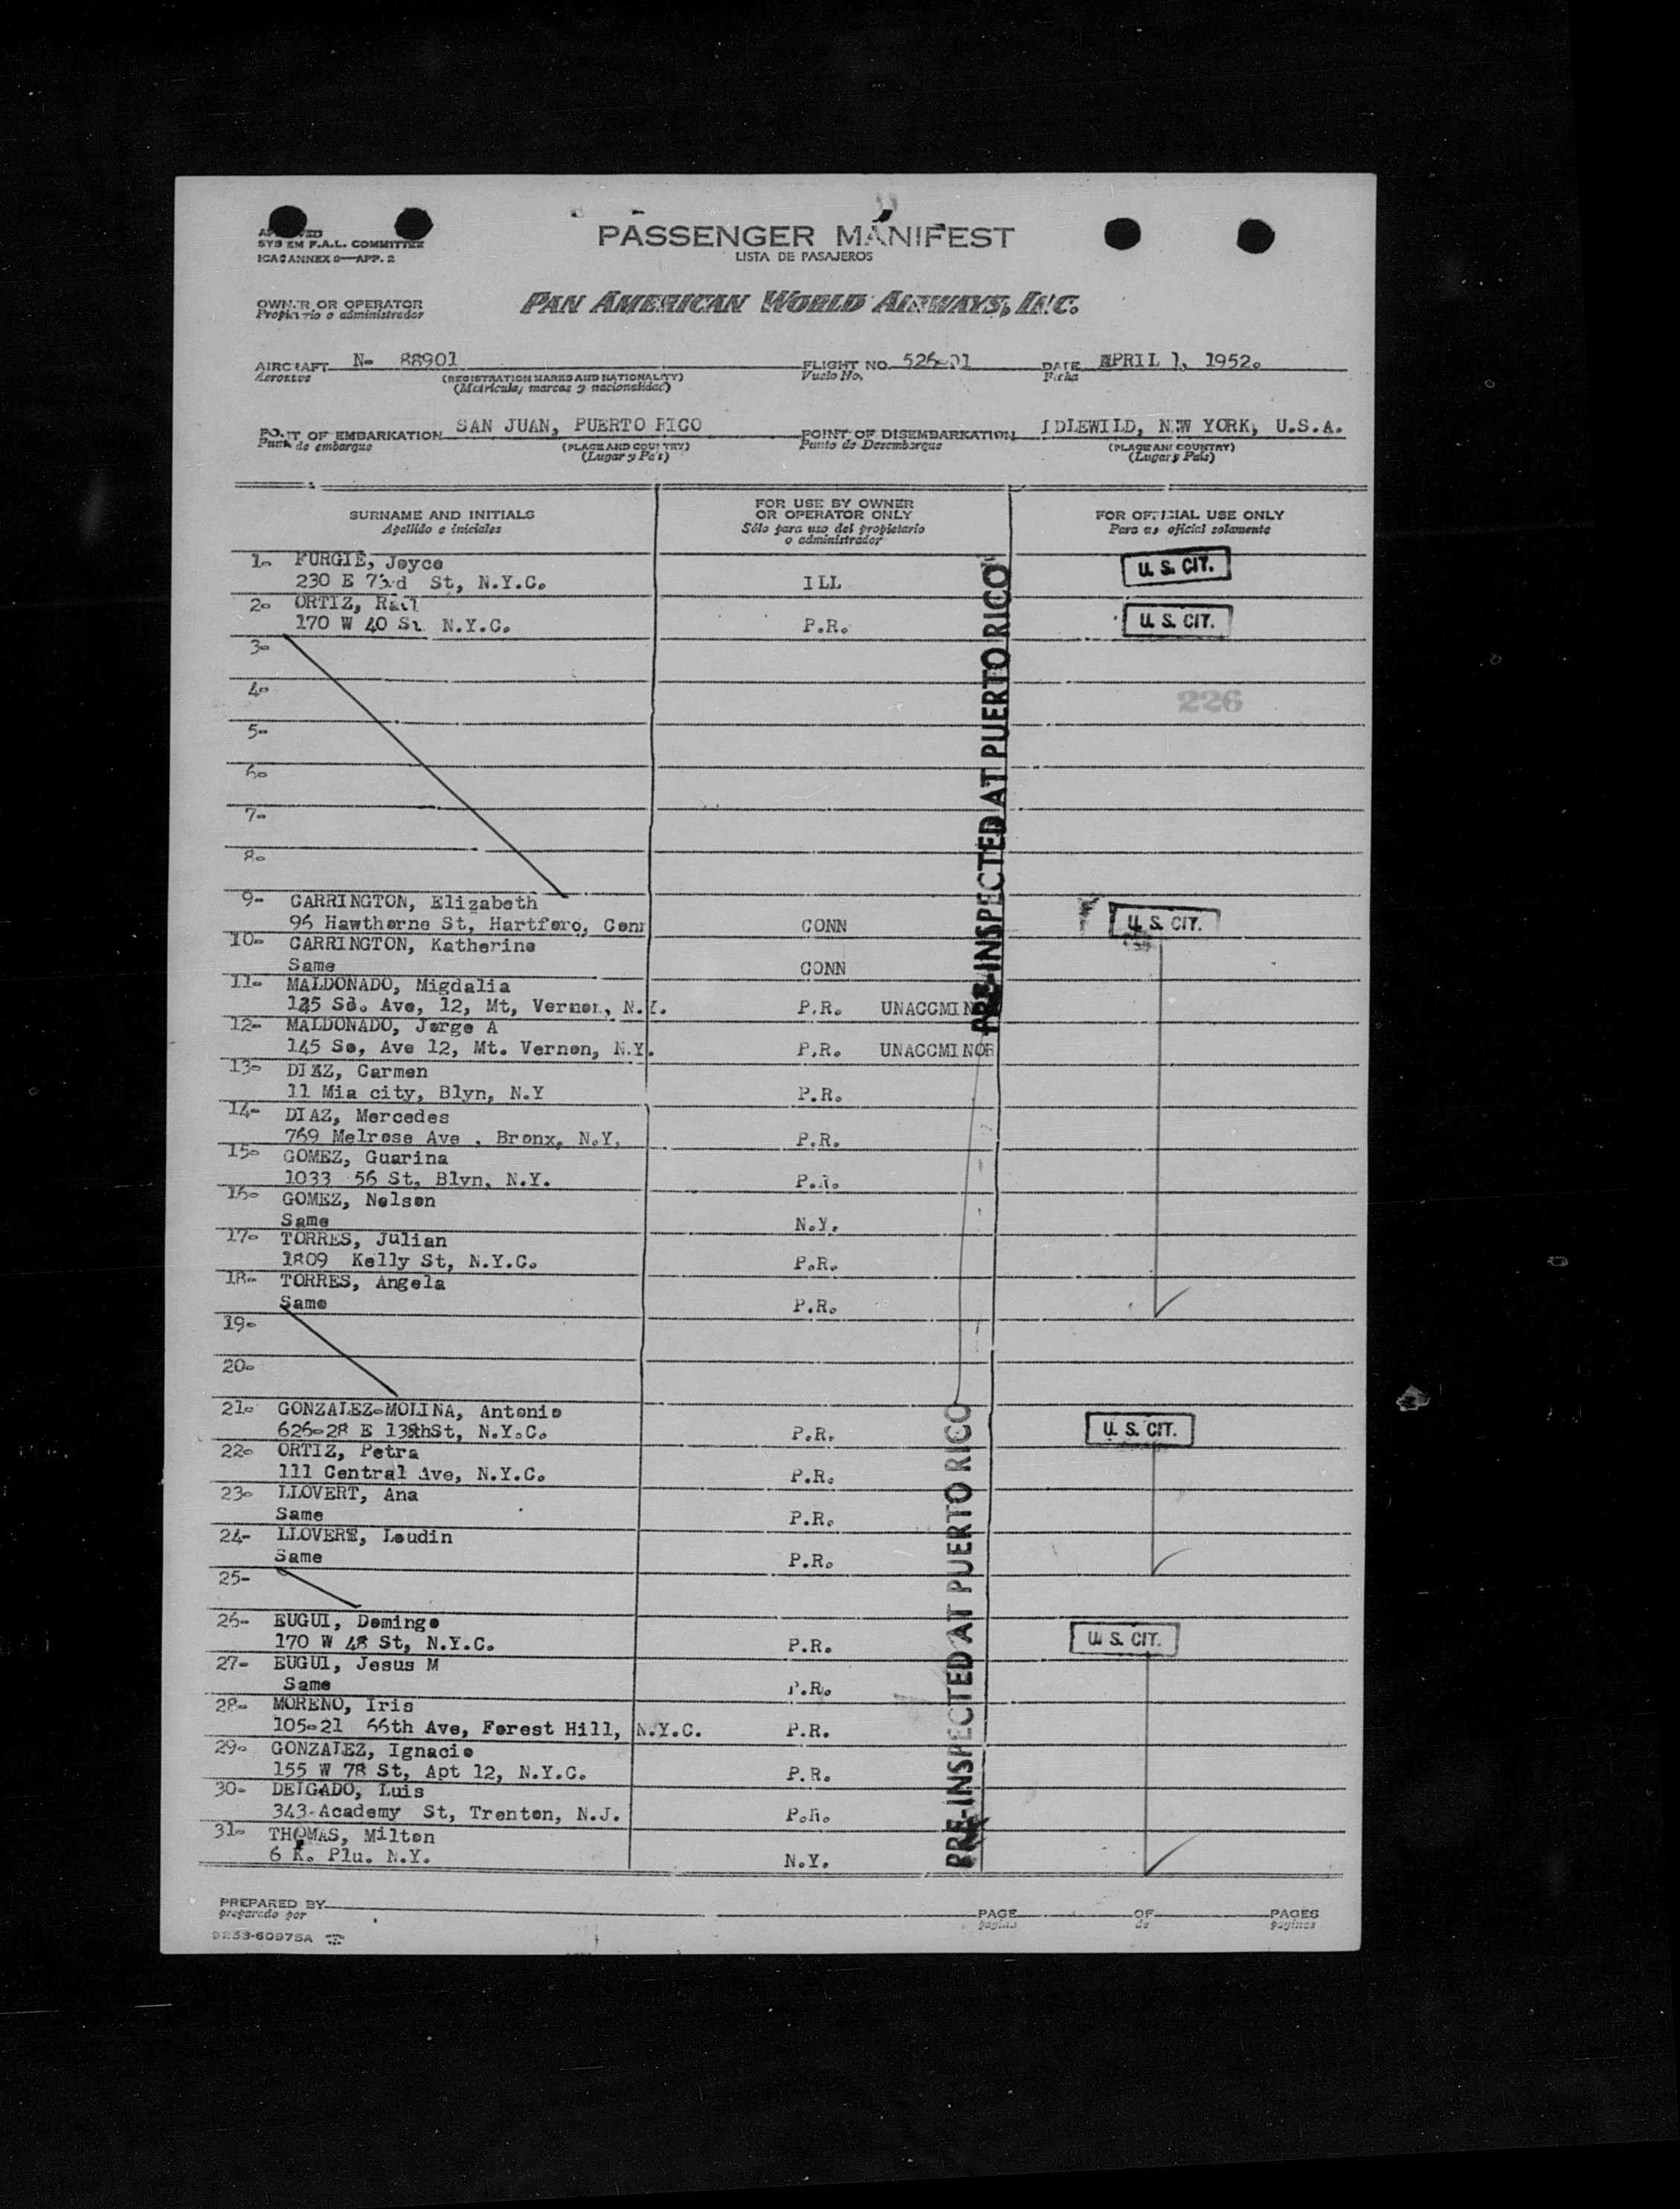 APPROVED
SYSTEM F.A.L. COMMITTEE
ICAO ANNEX 9—APP. 2
PASSENGER MANIFEST
LISTA DE PASAJEROS
OWNER OR OPERATOR
Propietario o administrador
PAN AMERICAN WORLD AIRWAYS, INC.
AIRCRAFT N- 88901 FLIGHT NO. 526-01 DATE APRIL 1, 1952.
Aeronave (REGISTRATION MARKS AND NATIONALITY) Vuelo No. Fecha
(Matricula, marcas y nacionalidad)
POINT OF EMBARKATION SAN JUAN, PUERTO RICO POINT OF DISEMBARKATION IDLEWILD, NEW YORK, U.S.A.
Punto de embarque (PLACE AND COUNTRY) Punto de Desembarque (PLACE AND COUNTRY)
(Lugar y País) (Lugar y País)
SURNAME AND INITIALS
Apellido e iniciales
FOR USE BY OWNER
OR OPERATOR ONLY
Sólo para uso del propietario
o administrador
FOR OFFICIAL USE ONLY
Para uso oficial solamente
1- FURGIE, Joyce U. S. CIT.
230 E 73rd St, N.Y.C. ILL
2- ORTIZ, Raul
170 W 40 St N.Y.C. P.R. U. S. CIT.
3-
4-
226
5-
6-
7-
8-
9- CARRINGTON, Elizabeth
96 Hawthorne St, Hartford, Conn CONN U. S. CIT.
10- CARRINGTON, Katherine
Same CONN
11- MALDONADO, Migdalia
145 So. Ave, 12, Mt, Vernon, N.Y. P.R. UNACCMINOR
12- MALDONADO, Jorge A
145 So, Ave 12, Mt. Vernon, N.Y. P.R. UNACCMINOR
13- DIAZ, Carmen
11 Mia city, Blyn, N.Y P.R.
14- DIAZ, Mercedes
769 Melrose Ave , Bronx, N.Y. P.R.
15- GOMEZ, Guarina
1033 56 St, Blyn, N.Y. P.R.
16- GOMEZ, Nelson
Same N.Y.
17- TORRES, Julian
1809 Kelly St, N.Y.C. P.R.
18- TORRES, Angela
Same P.R.
19-
20-
PRE-INSPECTED AT PUERTO RICO
21- GONZALEZ-MOLINA, Antonio
626-28 E 138thSt, N.Y.C. P.R. U. S. CIT.
22- ORTIZ, Petra
111 Central Ave, N.Y.C. P.R.
23- LLOVERT, Ana
Same P.R.
24- LLOVERT, Loudin
Same P.R.
25-
26- EUGUI, Domingo
170 W 48 St, N.Y.C. P.R. U. S. CIT.
27- EUGUI, Jesus M
Same P.R.
28- MORENO, Iris
105-21 66th Ave, Forest Hill, N.Y.C. P.R.
29- GONZALEZ, Ignacio
155 W 78 St, Apt 12, N.Y.C. P.R.
30- DELGADO, Luis
343-Academy St, Trenton, N.J. P.R.
31- THOMAS, Milton
6 K. Plu. N.Y. N.Y.
PRE-INSPECTED AT PUERTO RICO
PREPARED BY PAGE OF PAGES
preparado por página de páginas
9253-60975A